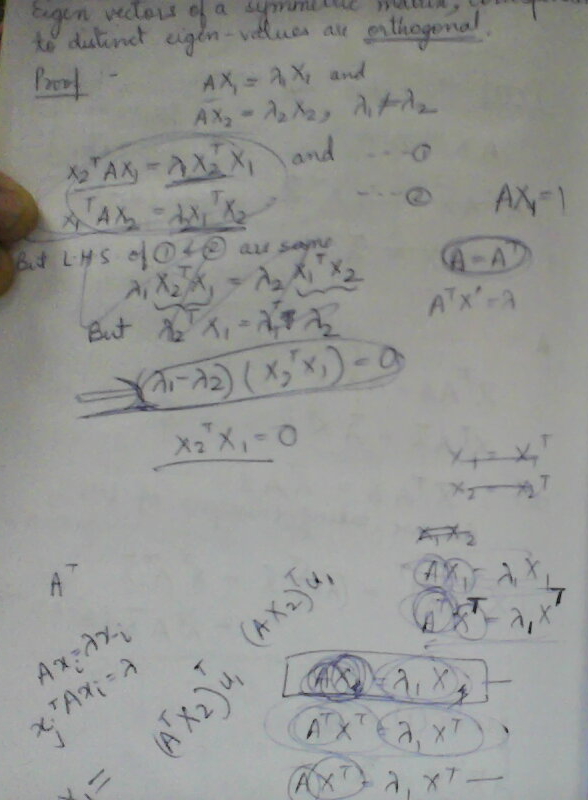 Eigen vectors of a symmetric matrix,
to distinct eigen-values are orthogonal.
Proof :-
AX₁ = λ₁X₁ and
AX₂ = λ₂X₂, λ₁ ≠ λ₂
X₂ᵀAX₁ = λ₁X₂ᵀX₁ and ----①
X₁ᵀAX₂ = λ₂X₁ᵀX₂ ----②
AX₁=1
But LHS of ① & ② are same
A = Aᵀ
λ₁X₂ᵀX₁ = λ₂X₁ᵀX₂
AᵀX' = λ
But λ₂ᵀX₁ = λ₁ᵀλ₂
⇒ (λ₁-λ₂) (X₂ᵀX₁) = 0
X₂ᵀX₁ = 0
X₁ = X₁ᵀ
X₂ = X₂ᵀ
X₁X₂
Aᵀ
AX₁ = λ₁X₁
(AX₂)ᵀu₁
AᵀXᵀ = λ₁Xᵀ
Axᵢ=λxᵢ
xⱼᵀAxᵢ=λ
AX₁ = λ₁X₁
(AᵀX₂)ᵀu₁
AᵀXᵀ = λ₁Xᵀ
AXᵀ = λ₁Xᵀ
x₁=